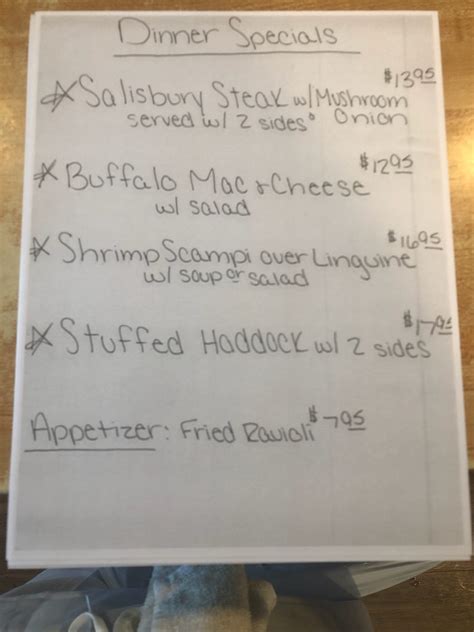 Dinner Specials
$13.95
☆Salisbury Steak w/Mushroom
served w/ 2 sides & Onion
$12.95
☆Buffalo Mac & Cheese
w/ salad
$16.95
☆Shrimp Scampi over Linguine
w/ soup or salad
$17.95
☆Stuffed Haddock w/ 2 sides
Appetizer: Fried Ravioli $7.95